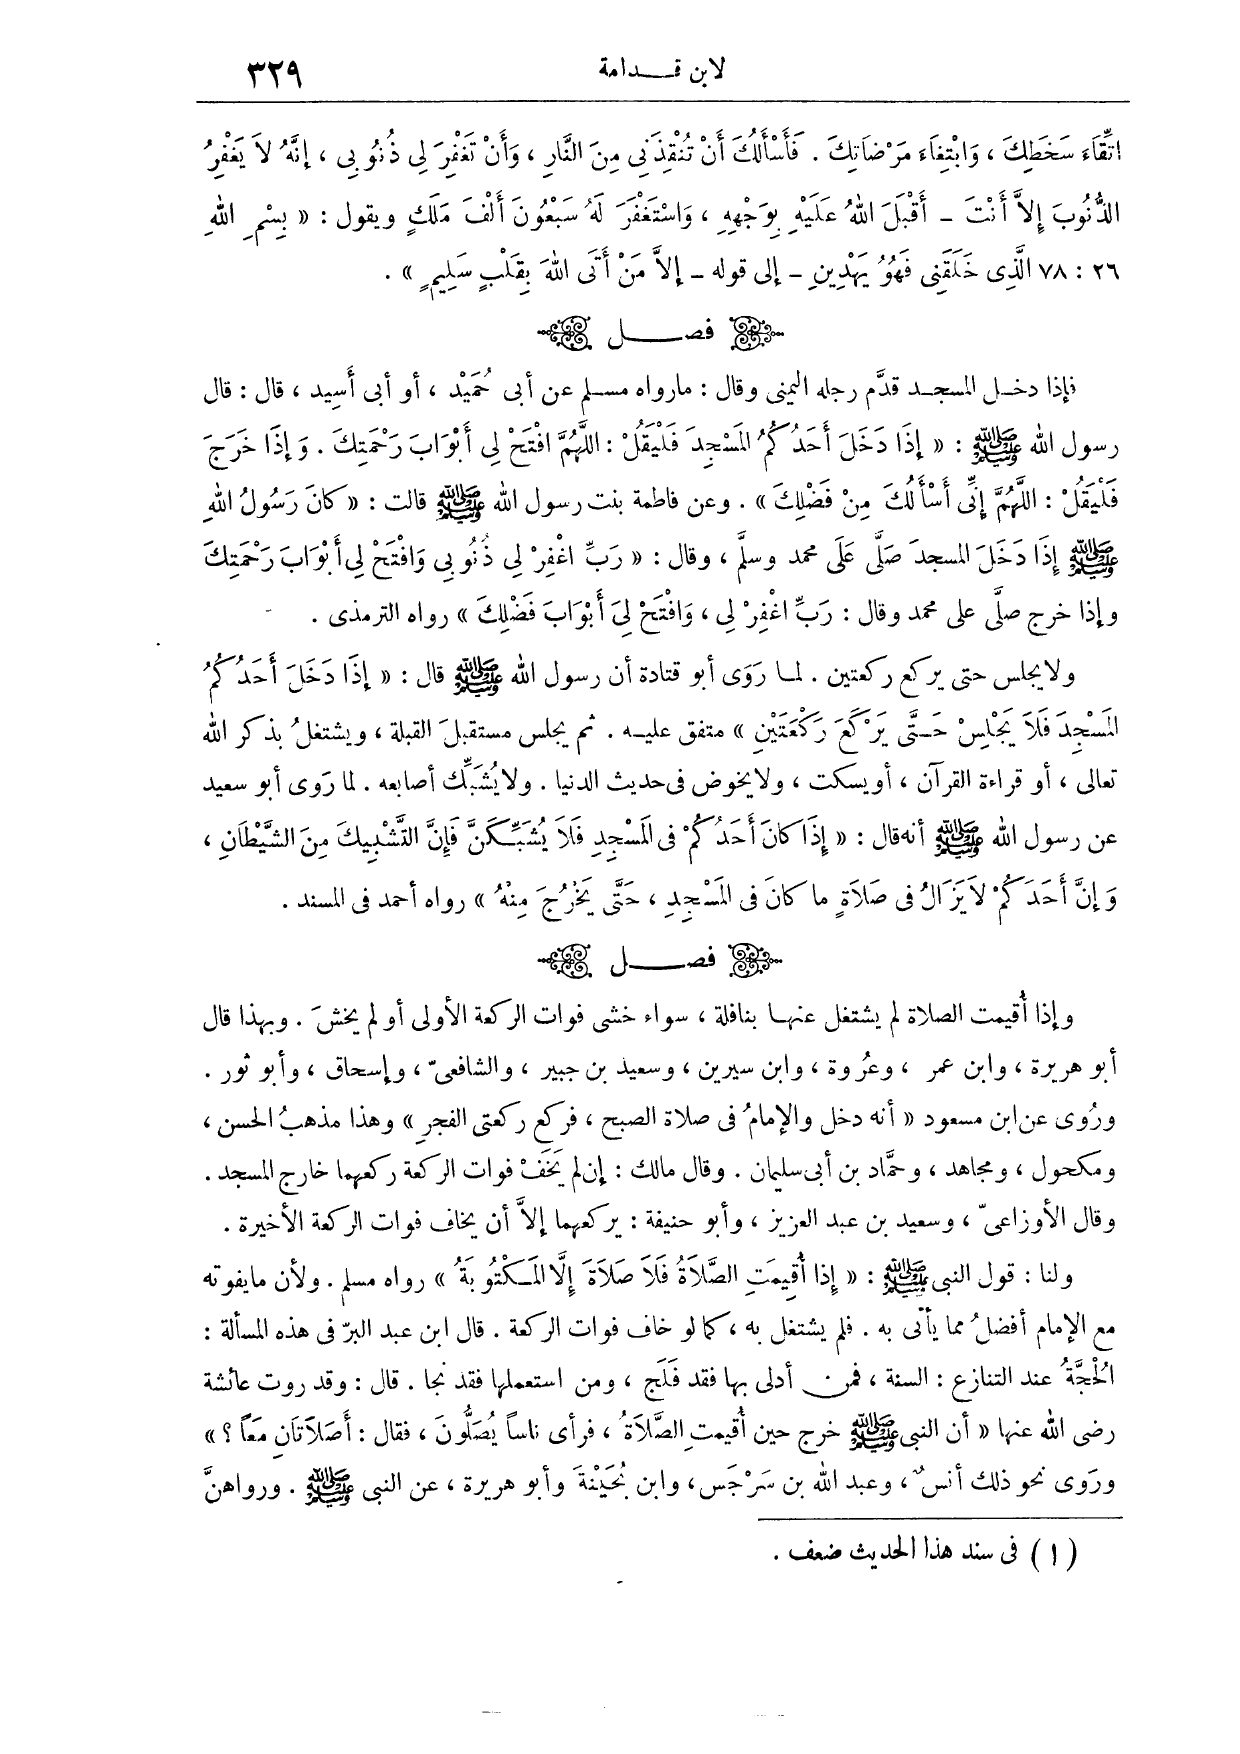 لابن قدامة ٣٢٩
اتِّقَاءَ سَخَطِكَ ، وَابْتِغَاءَ مَرْضَاتِكَ . فَأَسْأَلُكَ أَنْ تُنْقِذَنِي مِنَ النَّارِ ، وَأَنْ تَغْفِرَ لِي ذُنُوبِي ، إنَّهُ لاَ يَغْفِرُ
الذُّنُوبَ إِلاَّ أَنْتَ – أَقْبَلَ اللهُ عَلَيْهِ بِوَجْهِهِ ، وَاسْتَغْفَرَ لَهُ سَبْعُونَ أَلْفَ مَلَكٍ ويقول : « بِسْمِ اللهِ
٢٦ : ٧٨ الَّذِى خَلَقَنِى فَهُوَ يَهْدِينِ – إلى قوله – إِلاَّ مَنْ أَتَى اللهَ بِقَلْبٍ سَلِيمٍ » .
فصــل
فإذا دخل المسجد قدَّم رجله اليمنى وقال : مارواه مسلم عن أبى حُمَيْد ، أو أبى أَسِيد ، قال : قال
رسول الله ﷺ : « إِذَا دَخَلَ أَحَدُكُمُ المَسْجِدَ فَلْيَقُلْ : اللَّهُمَّ افْتَحْ لِي أَبْوَابَ رَحْمَتِكَ . وَإِذَا خَرَجَ
فَلْيَقُلْ : اللَّهُمَّ إِنِّى أَسْأَلُكَ مِنْ فَضْلِكَ » . وعن فاطمة بنت رسول الله ﷺ قالت : « كَانَ رَسُولُ اللهِ
ﷺ إِذَا دَخَلَ المسجدَ صَلَّى عَلَى محمد وسلَّم ، وقال : « رَبِّ اغْفِرْ لِى ذُنُوبِى وَافْتَحْ لِى أَبْوَابَ رَحْمَتِكَ
وإذا خرج صلَّى على محمد وقال : رَبِّ اغْفِرْ لِي ، وَافْتَحْ لِىَ أَبْوَابَ فَضْلِكَ » رواه الترمذى .
ولايجلس حتى يركع ركعتين . لما رَوَى أبو قتادة أن رسول الله ﷺ قال : « إِذَا دَخَلَ أَحَدُكُمُ
المَسْجِدَ فَلاَ يَجْلِسْ حَتَّى يَرْكَعَ رَكْعَتَيْنِ » متفق عليه . ثم يجلس مستقبلَ القبلة ، ويشتغلُ بذكر الله
تعالى ، أو قراءة القرآن ، أو يسكت ، ولايخوض فى حديث الدنيا . ولا يُشَبِّك أصابعه . لما رَوى أبو سعيد
عن رسول الله ﷺ أنه قال : « إِذَا كَانَ أَحَدُكُمْ فى المَسْجِدِ فَلاَ يُشَبِّكَنَّ فَإِنَّ التَّشْبِيكَ مِنَ الشَّيْطَانِ ،
وَإِنَّ أَحَدَكُمْ لاَيَزَالُ فى صَلاَةٍ ما كانَ فى المَسْجِدِ ، حَتَّى يَخْرُجَ مِنْهُ » رواه أحمد فى المسند .
فصــل
وإذا أُقيمت الصلاة لم يشتغل عنها بنافلة ، سواء خشى فوات الركعة الأولى أو لم يخشَ . وبهذا قال
أبو هريرة ، وابن عمر ، وعُروة ، وابن سيرين ، وسعيد بن جبير ، والشافعىّ ، وإسحاق ، وأبو ثور .
ورُوى عن ابن مسعود « أنه دخل والإمامُ فى صلاة الصبح ، فركع ركعتى الفجرِ » وهذا مذهبُ الحسن ،
ومكحول ، ومجاهد ، وحمَّاد بن أبى سليمان . وقال مالك : إن لم يَخَفْ فوات الركعة ركعهما خارج المسجد .
وقال الأوزاعىّ ، وسعيد بن عبد العزيز ، وأبو حنيفة : يركعهما إلاَّ أن يخاف فوات الركعة الأخيرة .
ولنا : قول النبى ﷺ : « إِذا أُقِيمَتِ الصَّلاَةُ فَلاَ صَلاَةَ إِلَّا المَكْتُوبَةُ » رواه مسلم . ولأن مايفوته
مع الإمام أفضلُ مما يأتى به . فلم يشتغل به ، كما لو خاف فوات الركعة . قال ابن عبد البرّ فى هذه المسألة :
الحُجَّةُ عند التنازع : السنة ، فمن أدلى بها فقد فَلَج ، ومن استعملها فقد نجا . قال : وقد روت عائشة
رضى الله عنها « أن النبى ﷺ خرج حين أُقيمت الصَّلاَةُ ، فرأى ناساً يُصَلُّونَ ، فقال : أَصَلاَتَانِ مَعَاً ؟ »
ورَوى نحو ذلك أنسٌ ، وعبد الله بن سَرْجَس ، وابن بُحَيْنَةَ وأبو هريرة ، عن النبى ﷺ . ورواهنَّ
( ١ ) فى سند هذا الحديث ضعف .